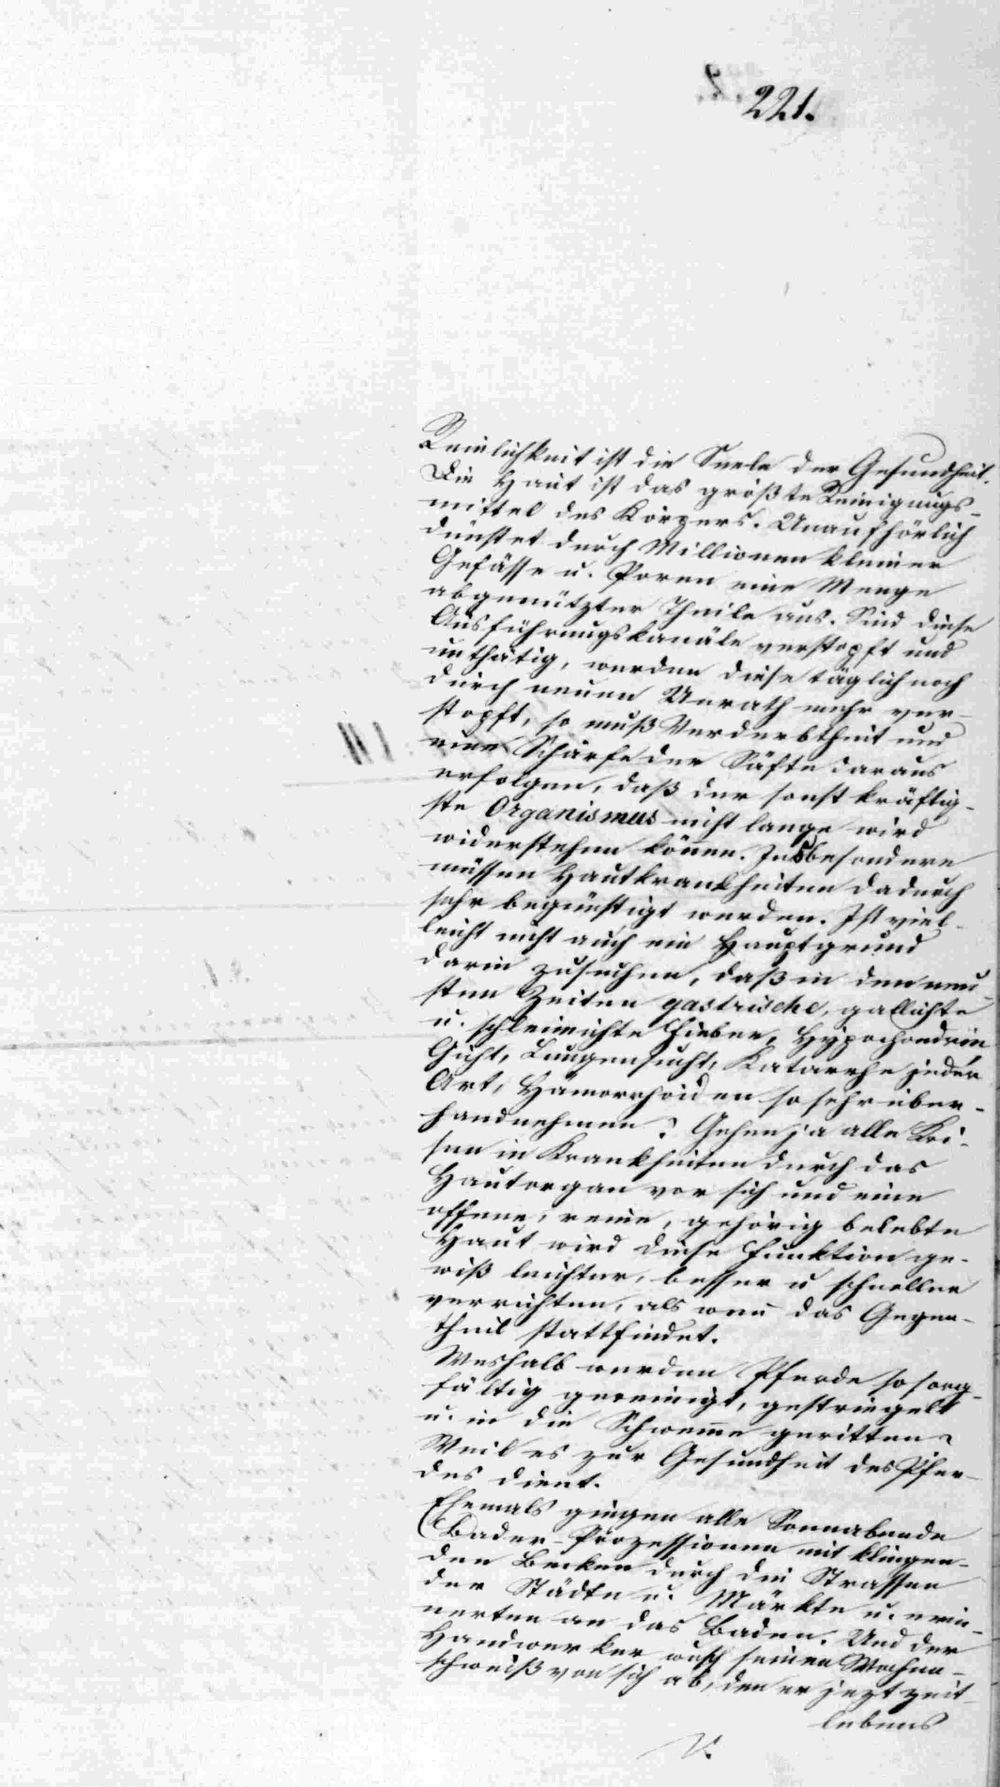 221.
Reinlichkeit ist die Seele der Gesundheit.
Die Haut ist das größte Reinigungs-
mittel des Körpers. Unaufhörlich
dünstet durch Millionen kleiner
Gefässe u. Poren eine Menge
abgenützter Theile aus. Sind diese
Ausführungskanäle verstopft und
unthätig, werden diese täglich noch
durch neuen Unrath mehr ver-
stopft, so muß Verderbtheit und
eine Schärfe der Säfte daraus
erfolgen, daß der sonst kräftig-
ste Organismus nicht lange wird
widerstehen können. Insbesondere
müssen Hautkrankheiten dadurch
sehr begünstigt werden. Ist viel-
leicht nicht auch ein Hauptgrund
darin zusuchen, daß in den neu-
sten Zeiten gastrische, gallichte
u. schleimichte Fieber, Hypochondrie
Gicht, Lungensucht, Katarrhe jeder
Art, Hämorrhoiden so sehr über-
handnehmen? Gehen ja alle Kri-
sen in Krankheiten durch das
Hautorgan vor sich und eine
offene, reine, gehörig belebte
Haut wird diese Funktion ge-
wiß leichter, besser u schneller
verrichten, als wenn das Gegen-
theil stattfindet.
Weshalb werden Pferde so sorg-
fältig gereinigt, gestriegelt
u. in die Schwemme geritten?
Weil es zur Gesundheit des Pfer-
des dient.
Ehemals gingen alle Sonnabende
Bader-Prozessionen mit klingen-
den Becken durch die Strassen
der Städte u. Märkte u. erin-
nerten an das Baden. Und der
Handwerker wusch seinen Wochen-
schweiß von sich ab, den er jezt zeit-
lebens